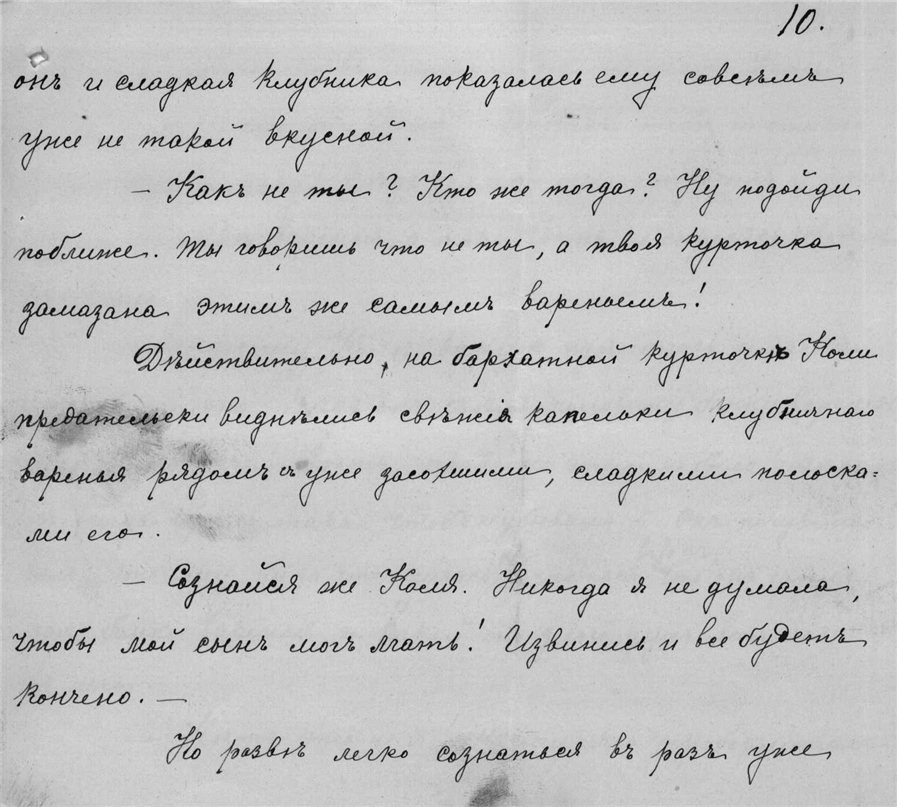 10.
онъ и сладкая клубника показалась ему совсѣмъ
уже не такой вкусной.
— Какъ не ты? Кто же тогда? Ну подойди
поближе. Ты говоришь что не ты, а твоя курточка
замазана этимъ же самымъ вареньемъ!
Дѣйствительно, на бархатной курточкѣ Коли
предательски виднѣлись свѣжія капельки клубничнаго
варенья рядомъ съ уже засохшими, сладкими полоска=
ми его.
— Сознайся же Коля. Никогда я не думала,
чтобы мой сынъ могъ лгать! Извинись и все будетъ
кончено. —
Но развѣ легко сознаться въ разъ уже